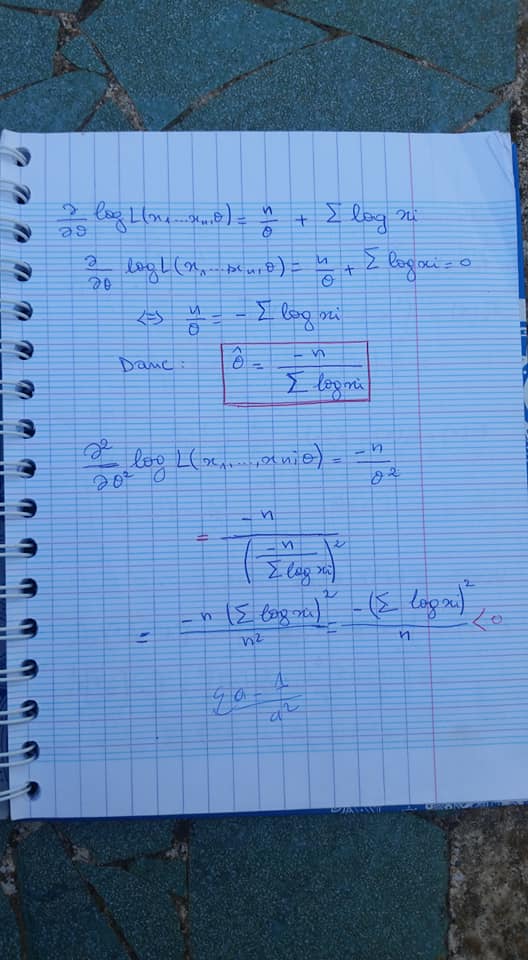 ∂/∂θ log L(x₁...xₙ,θ) = n/θ + Σ log xi
∂/∂θ log L(x₁,...,xₙ,θ) = n/θ + Σ log xi = 0
⇔ n/θ = - Σ log xi
Donc : θ̂ = -n / Σ log xi
∂²/∂θ² log L(x₁,...,xn;θ) = -n/θ²
= -n / (-n / Σ log xi)²
= -n (Σ log xi)² / n² = -(Σ log xi)² / n < 0